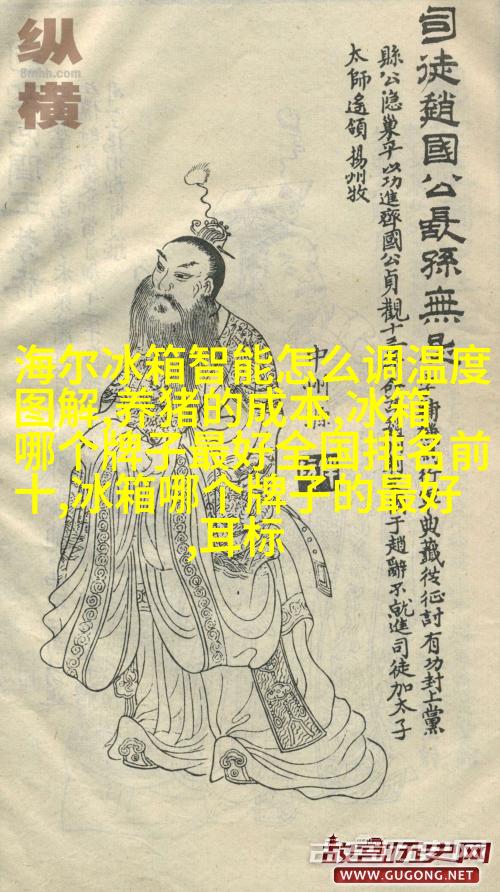 纵
8mhh.com
横
司徒趙國公長孫無忌
典籤從征討有功封上黨
縣公隐巢平以功進齊國公貞觀十三
于趙辭不就進司徒加太子
太師遙領揚州牧
海尔冰箱智能怎么调温度
图解,养猪的成本,冰箱
哪个牌子最好全国排名前
十,冰箱哪个牌子的最好
,耳标
故宫历史网
WWW.GUGONG.NET